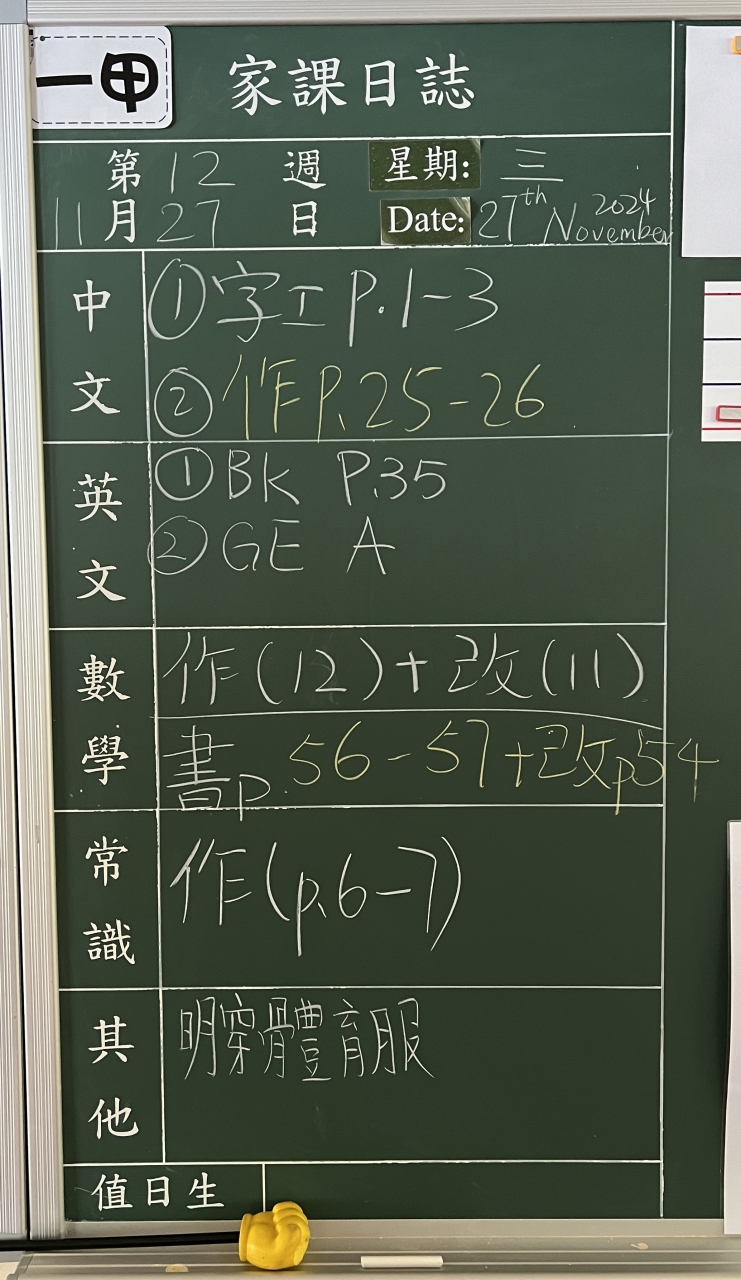 一甲
家課日誌
第12週 星期: 三
11月27日 Date: 27th November 2024
中文
①字工 P.1-3
②作 P.25-26
英文
①BK P.35
②GE A
數學
作(12)+改(11)
書p.56-57+改p54
常識
作(p.6-7)
其他
明穿體育服
值日生